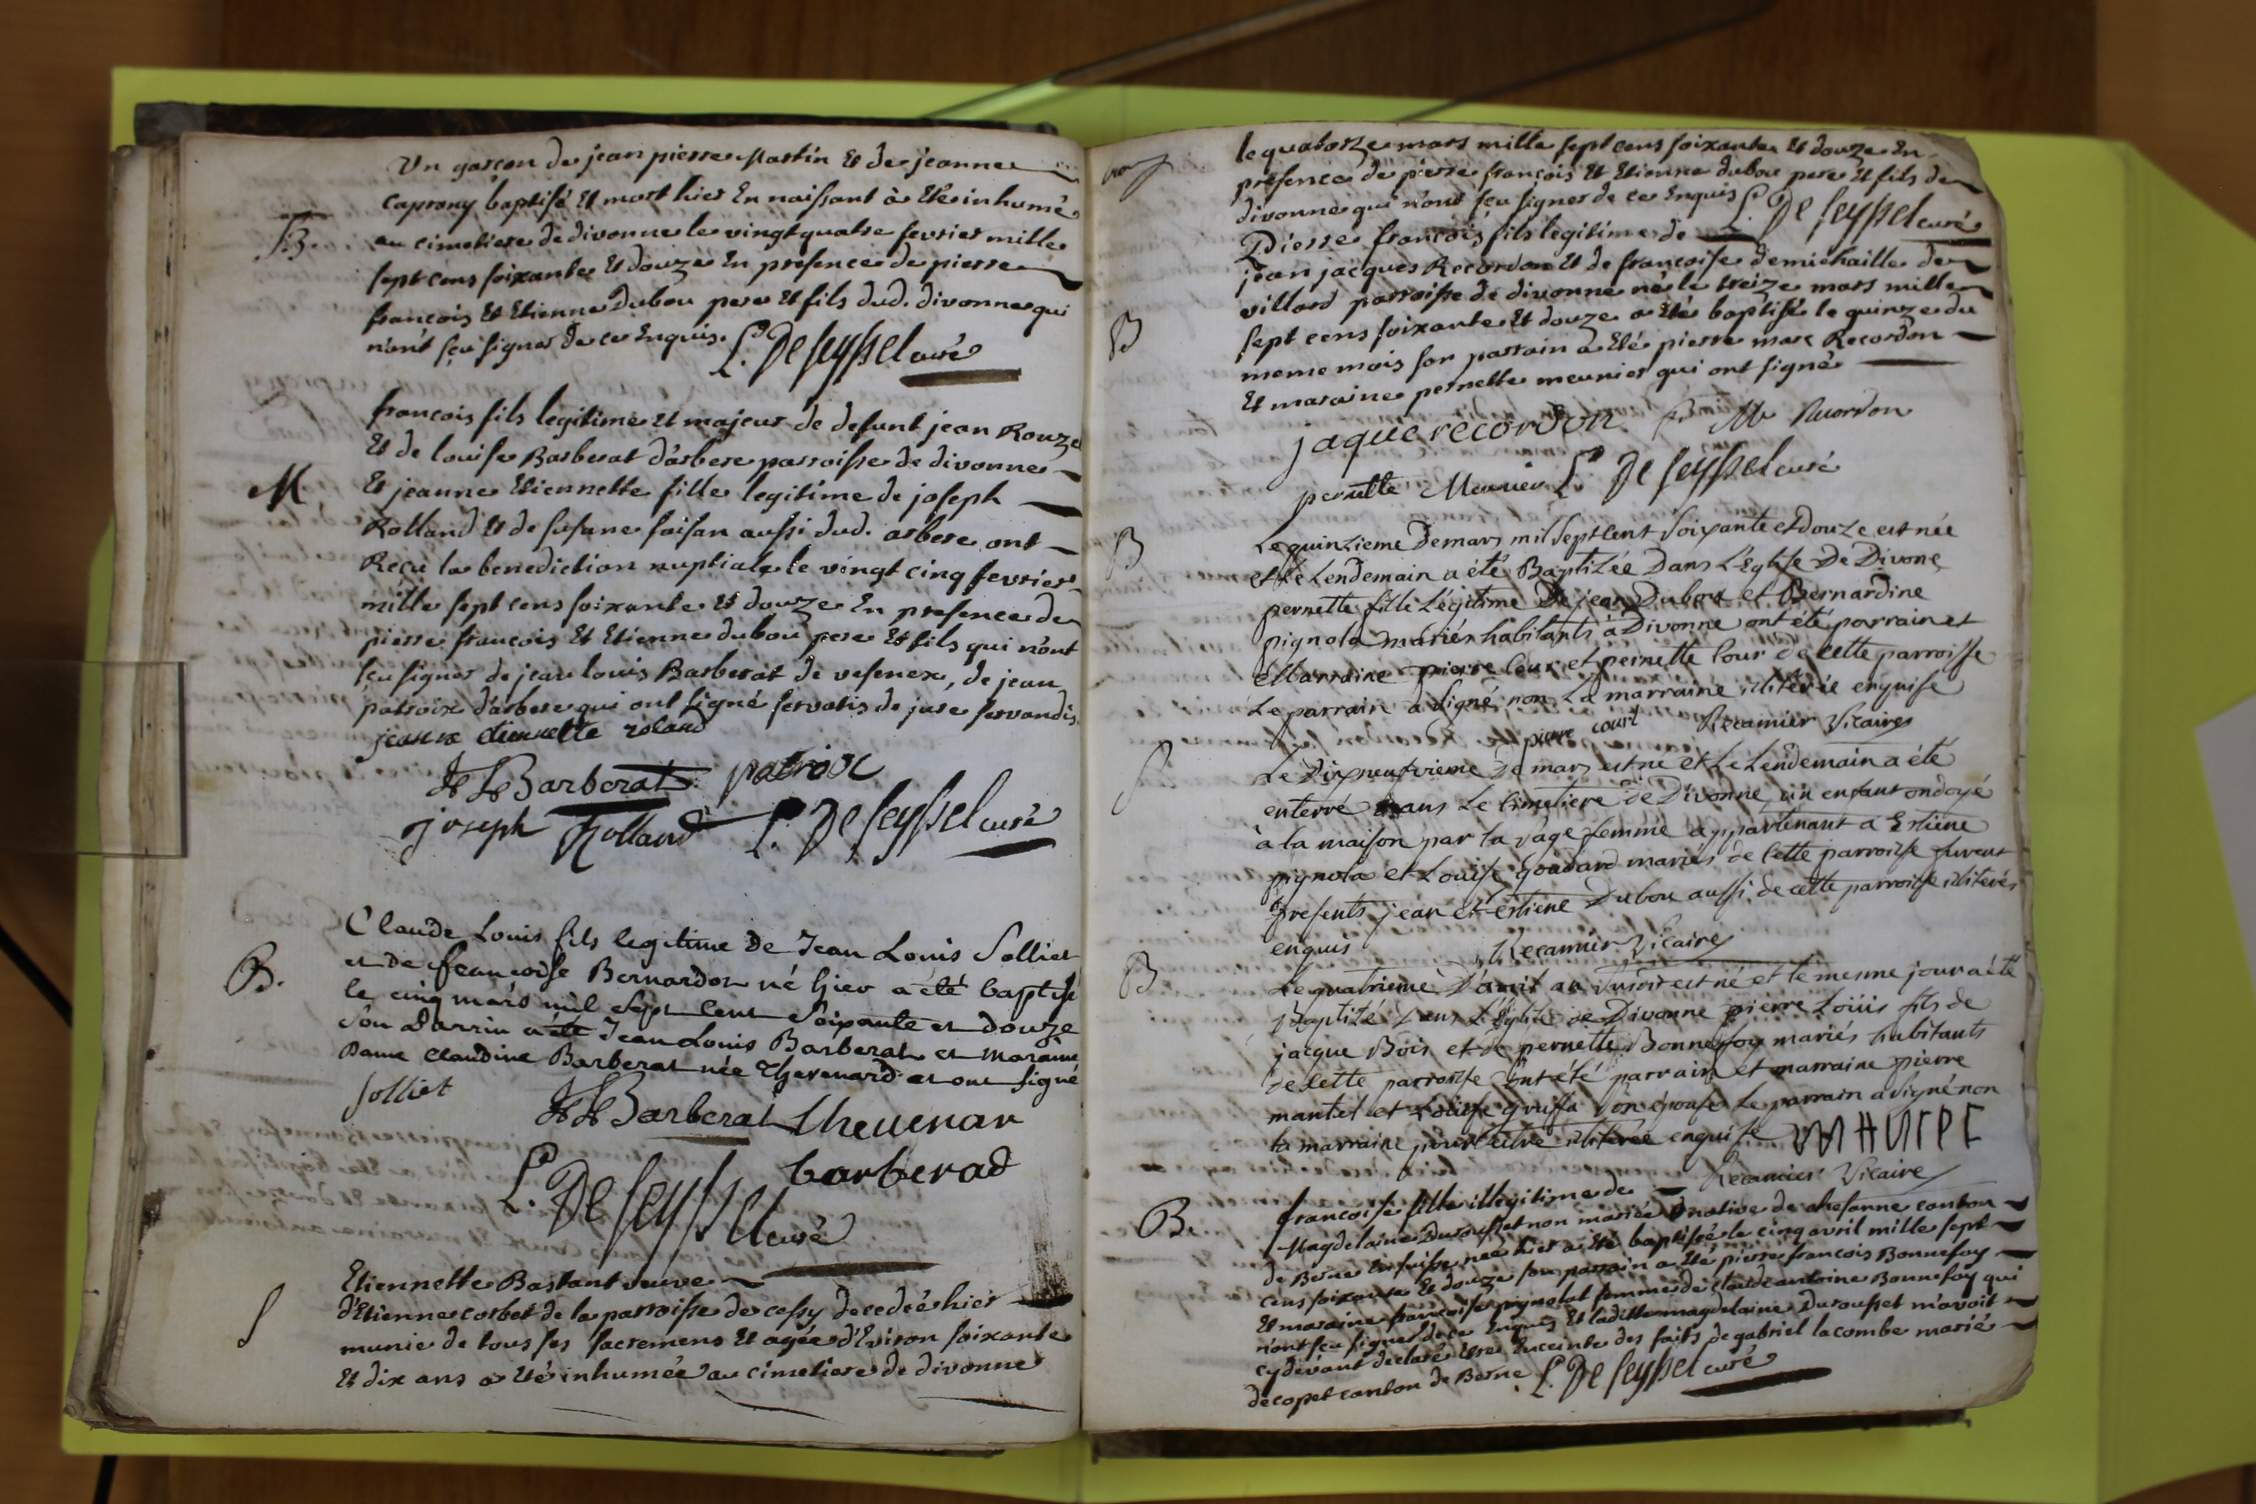 Un garcon de jean pierre Martin Et de jeanne
caprony baptisé Et mort hier En naissant à Eté inhumé
B.
au cimetiere de divonne le vingt quatre fevrier mille
sept cens soixante Et douze En presence de pierre
francois Et Etienne Dubou pere Et fils dud. divonne qui
n'ont sçu signer de ce Enquis. L. De Seyssel curé
francois fils legitime Et majeur de defunt jean Rouze
Et de louise Barberat d'arbere parroisse de divonne
M.
Et jeanne Etiennette fille legitime de joseph
Rolland Et de susane faisan aussi dud. arbere ont
Reçu la benediction nuptiale le vingt cinq fevrier
mille sept cens soixante Et douze En presence de
pierre francois Et Etienne dubou pere Et fils qui n'ont
sçu signer de jean louis Barberat de vesenex, de jean
patroix d'arbere qui ont signé servatis de jure servandis
jeanne etiennette roland
JL Barberat patroix
joseph Rolland L. De Seyssel curé
Claude Louis fils legitime de Jean Louis Solliet
B.
et de francoise Bernardot né hier a été baptisé
le cinq mars mil sept cent Soixante et douze
Son Parrin a été Jean Louis Barberat et maraine
Dame Claudine Barberat née Thevenard et ont signé
Solliet
JL Barberat thevenar
barberad
L. De Seyssel curé
Etiennette Bastant veuve
S
d'Etienne corbet de la parroisse de cessy decedée hier
munie de tous ses sacremens Et agée d'Environ soixante
Et dix ans a Eté inhumée au cimetiere de divonne
le quatorze mars mille sept cens soixante Et douze En
presence de pierre francois Et Etienne dubou pere Et fils de
divonne qui n'ont sçu signer de ce Enquis L. De Seyssel curé
Pierre francois fils legitime de
jean jacques Recordon Et de francoise demichaille de
villard parroisse de divonne né le treize mars mille
B
sept cens soixante Et douze a été baptisé le quinze du
meme mois son parrain a Eté pierre marc Recordon
Et maraine pernette meunier qui ont signé
jaque recordon M Recordon
pernette Meunier L. De Seyssel curé
B
Le quinzieme De mars mil Sept cent Soixante et douze est née
et Le Lendemain a été Baptizée Dans L'Eglise De Divone
pernette fille Légitime De jean Dubou et Bernardine
pignola mariés habitants à Divonne ont été parrain et
Marraine pierre Cour et pernette Cour de cette parroisse
Le parrain a signé non La marraine illiterée enquise
pierre court Recamier Vicaire
S
Le Dixneuvieme De mars est né et Le Lendemain a été
enterré dans Le Cimetiere de Divonne un enfant ondoyé
à la maison par la sage femme appartenant a Estiene
pignola et Louise Goudard mariés de Cette parroisse furent
presents jean et Estiene Dubou aussi de cette parroisse illiterés
enquis Recamier Vicaire
B
Le quatrieme D'avril au Susoir est né et le mesme jour a été
Baptizé Dans L'Eglise de Divonne pierre Loüis fils de
jacque Bois et de pernette Bonnefoy mariés habitants
de Cette parroisse Ont été parrain et marraine pierre
mantel et Loüise gruffa son épouse Le parrain a signé non
la marraine pour estre illiterée enquise
Recamier Vicaire
B.
francoise fille illegitime de
Magdelaine Durousset non mariée native de chesanne canton
de Berne En suisse née hier a Eté baptisée le cinq avril mille sept
cens soixante Et douze son parrain a Eté pierre francois Bonnefoy
Et maraine francoise pignolat femme de claude antoine Bonnefoy qui
n'ont sçu signer de ce Enquis Et ladite magdelaine Durousset m'avoit
cy devant declaré Etre Enceinte des faits de gabriel lacombe marié
de copet canton de Berne. L. De Seyssel curé